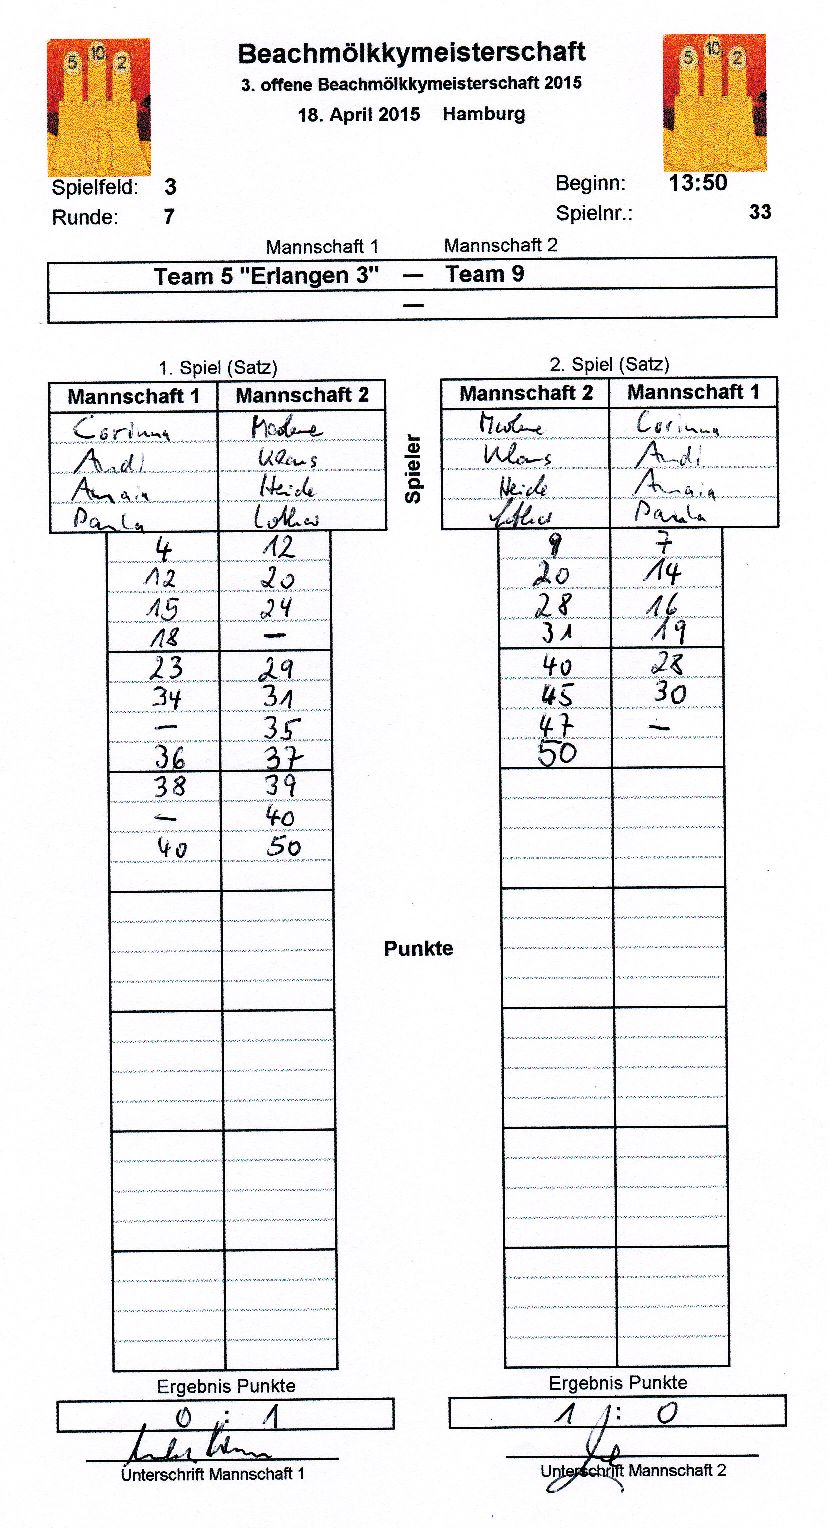 5 10 2
5 10 2
Beachmölkkymeisterschaft
3. offene Beachmölkkymeisterschaft 2015
18. April 2015 Hamburg
Spielfeld: 3 Beginn: 13:50
Runde: 7 Spielnr.: 33
Mannschaft 1 Mannschaft 2
Team 5 "Erlangen 3" — Team 9
—
1. Spiel (Satz)
Mannschaft 1 Mannschaft 2
Corinna
Andi Klaus
Amaia Heide
Paula Lothar
4 12
12 20
15 24
18 —
23 29
34 31
— 35
36 37
38 39
— 40
40 50
Spieler
Punkte
2. Spiel (Satz)
Mannschaft 2 Mannschaft 1
Corinna
Klaus Andi
Heide Amaia
Lothar Paula
9 7
20 14
28 16
31 19
40 28
45 30
47 —
50
Ergebnis Punkte
0 : 1
Unterschrift Mannschaft 1
Ergebnis Punkte
1 : 0
Unterschrift Mannschaft 2